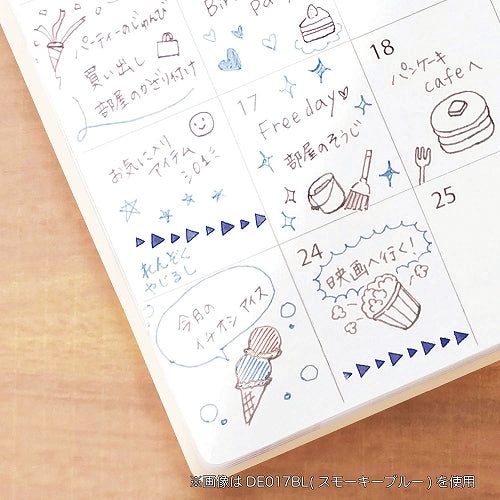 パーティーのじゅんび
買い出し
部屋のかざり付け
17
Freeday
部屋のそうじ
18
パンケーキ
cafeへ
お気に入り
アイテム
れんぞく
やじるし
24
映画へ行く!
25
今月の
イチオシ アイス
※画像は DE017BL ( スモーキーブルー ) を使用